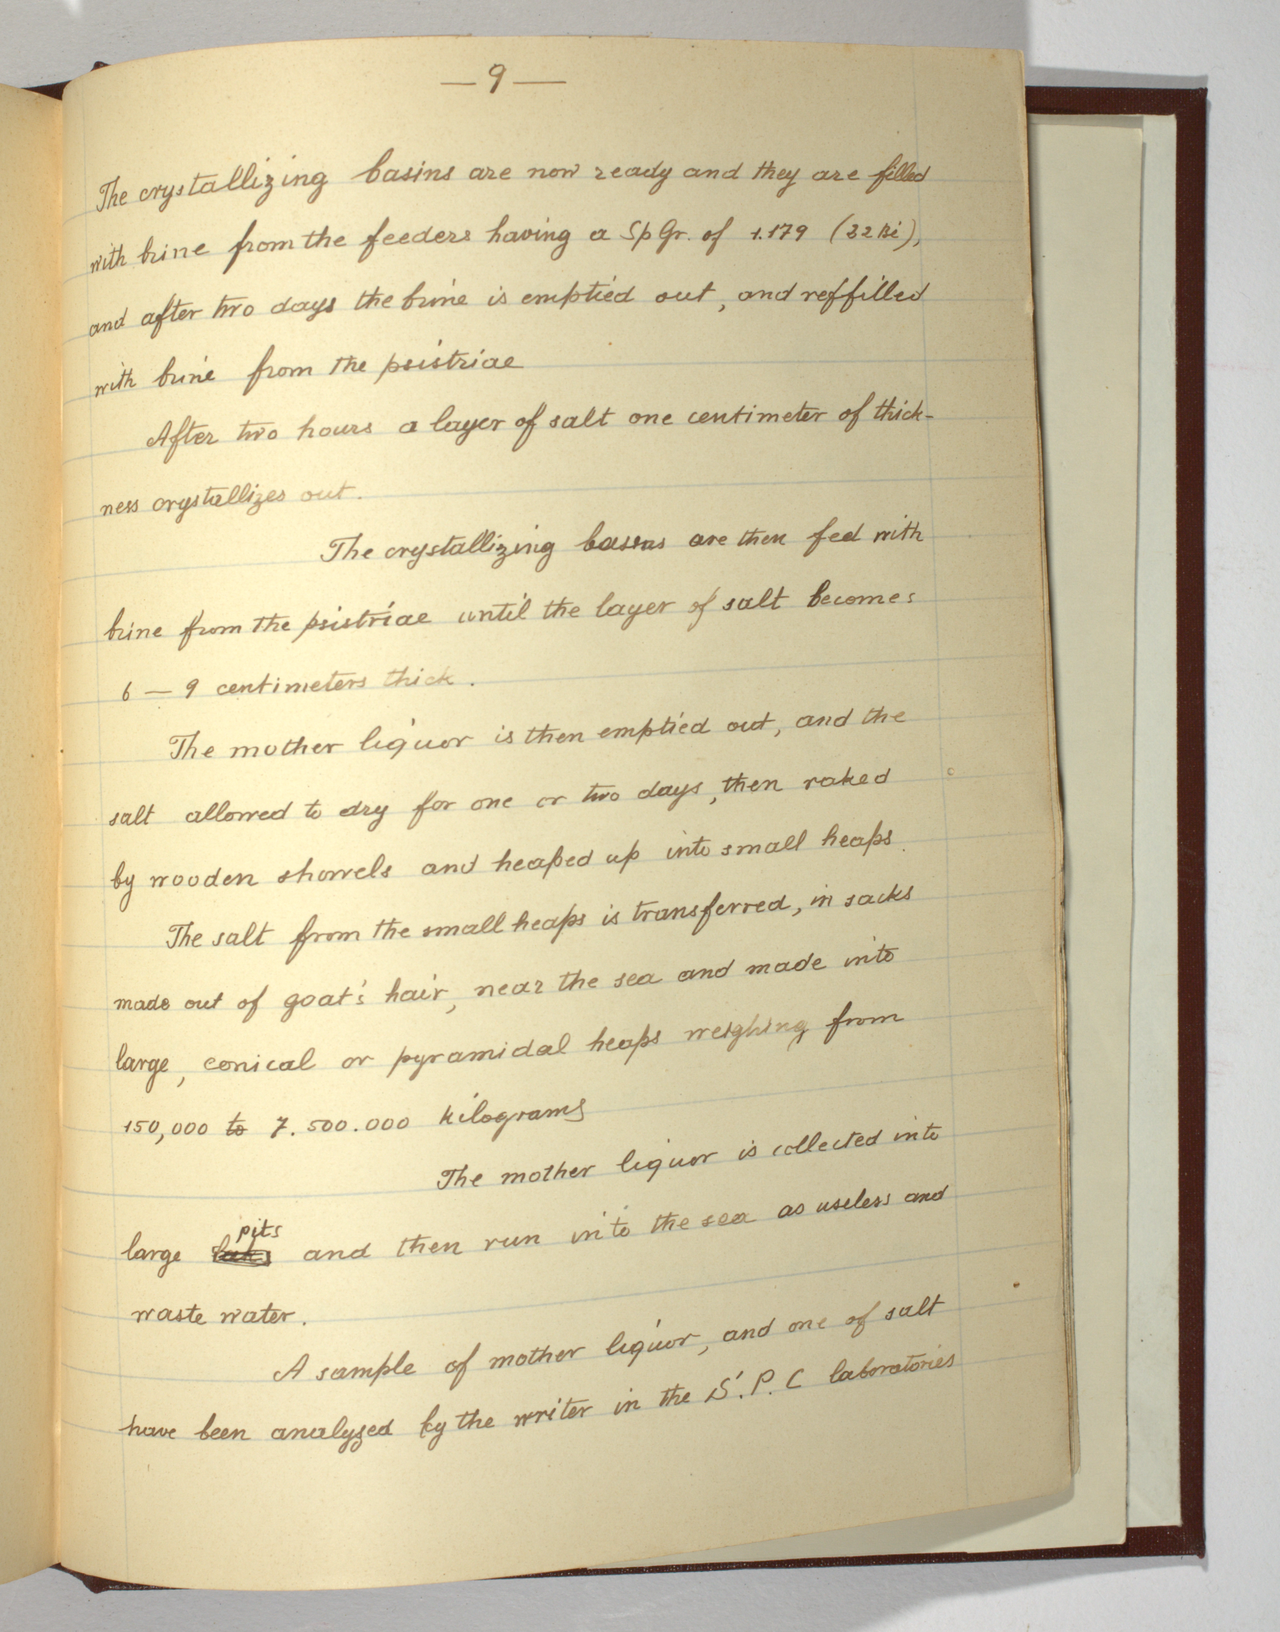 — 9 —
The crystallizing basins are now ready and they are filled
with brine from the feeders having a Sp Gr. of 1.179 (22 Bé),
and after two days the brine is emptied out, and reffilled
with brine from the psistriae
After two hours a layer of salt one centimeter of thick-
ness crystallizes out.
The crystallizing basins are then fed with
brine from the psistriae until the layer of salt becomes
6 — 9 centimeters thick.
The mother liquor is then emptied out, and the
salt allowed to dry for one or two days, then raked
by wooden showels and heaped up into small heaps.
The salt from the small heaps is transferred, in sacks
made out of goat's hair, near the sea and made into
large, conical or pyramidal heaps weighing from
150,000 to 7.500.000 kilograms
The mother liquor is collected into
large pits and then run into the sea as useless and
waste water.
A sample of mother liquor, and one of salt
have been analyzed by the writer in the S.P.C laboratories